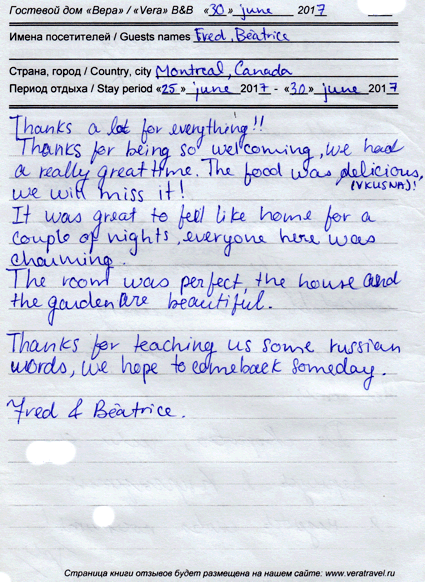 Гостевой дом «Вера» / «Vera» B&B «30» june 2017
Имена посетителей / Guests names Fred, Béatrice
Страна, город / Country, city Montreal, Canada
Период отдыха / Stay period «25» june 2017 - «30» june 2017
Thanks a lot for everything!!
Thanks for being so welcoming, we had
a really great time. The food was delicious,
(VKUSNA)!
we will miss it!
It was great to fell like home for a
couple of nights, everyone here was
charming.
The room was perfect, the house and
the garden are beautiful.
Thanks for teaching us some russian
words, we hope to comeback someday.
Fred & Béatrice.
Страница книги отзывов будет размещена на нашем сайте: www.veratravel.ru